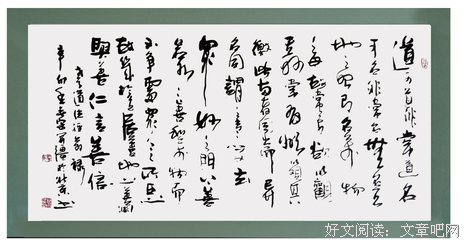 道可道非常道名
可名非常名無名天
地之始有名萬物
之母故常無欲以觀
其妙常有欲以觀其
徼此兩者同出而異
名同謂之玄
眾妙之門上善
若水水善利萬物而
不爭處眾人之所惡
故幾於道居善地心善淵
與善仁言善信
老子道德經節錄
辛卯年於北京
好文阅读：文章吧网